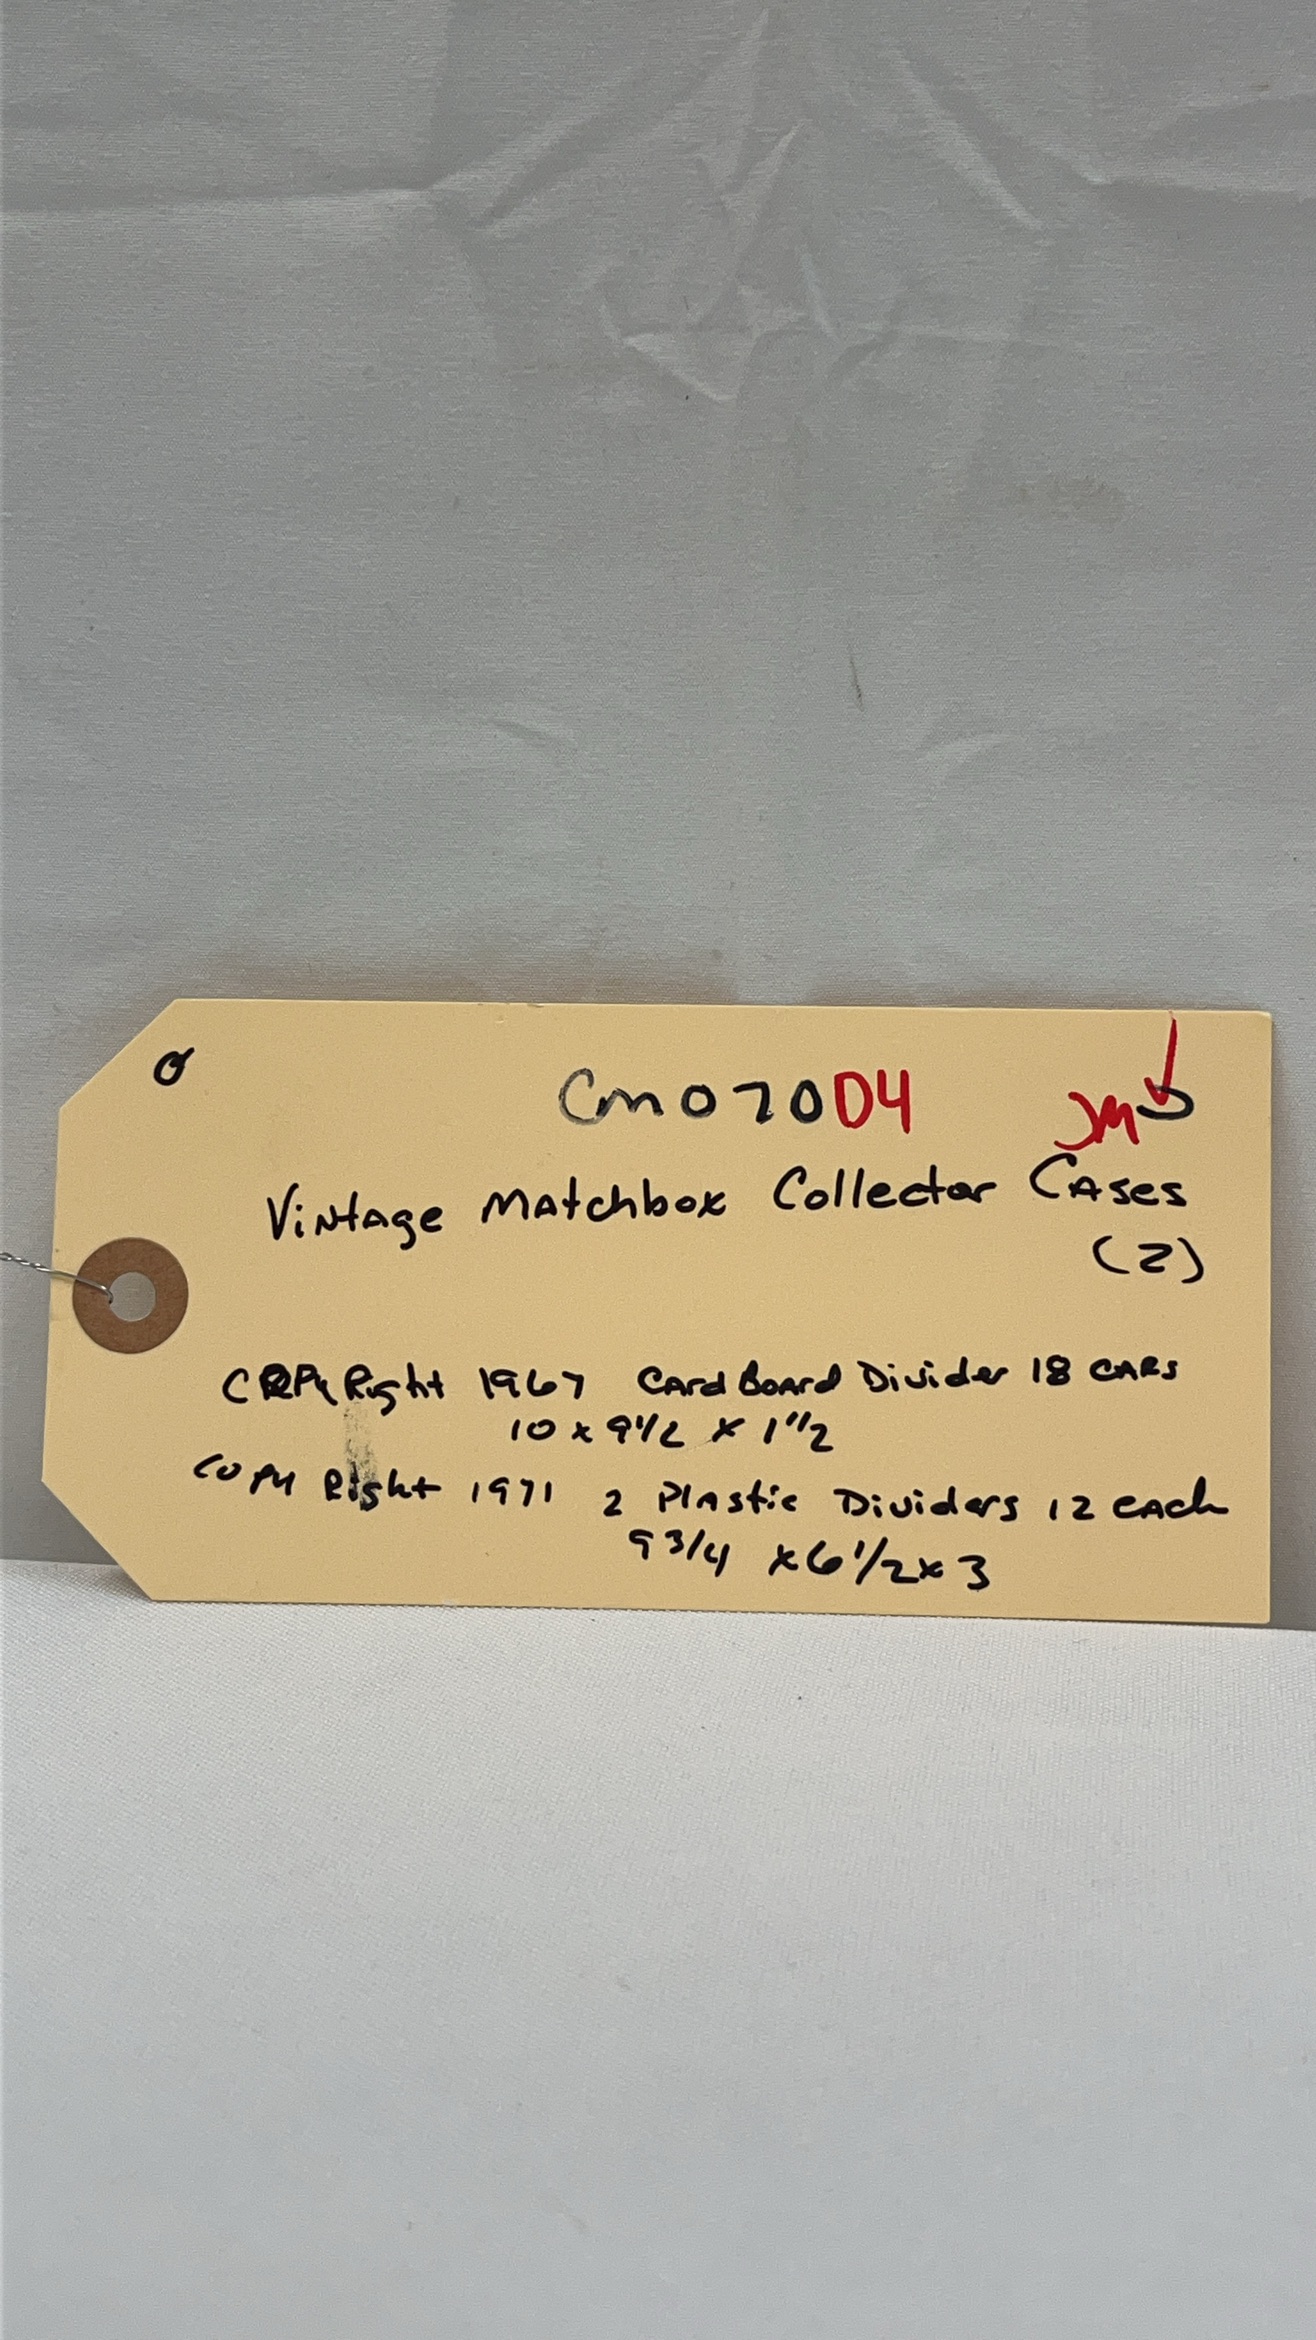 Cm070D4 JM
Vintage Matchbox Collector Cases
(2)
CopyRight 1967 CardBoard Divider 18 CARs
10 x 9 1/2 x 1 1/2
CoPy Right 1971 2 Plastic Dividers 12 each
9 3/4 x 6 1/2 x 3